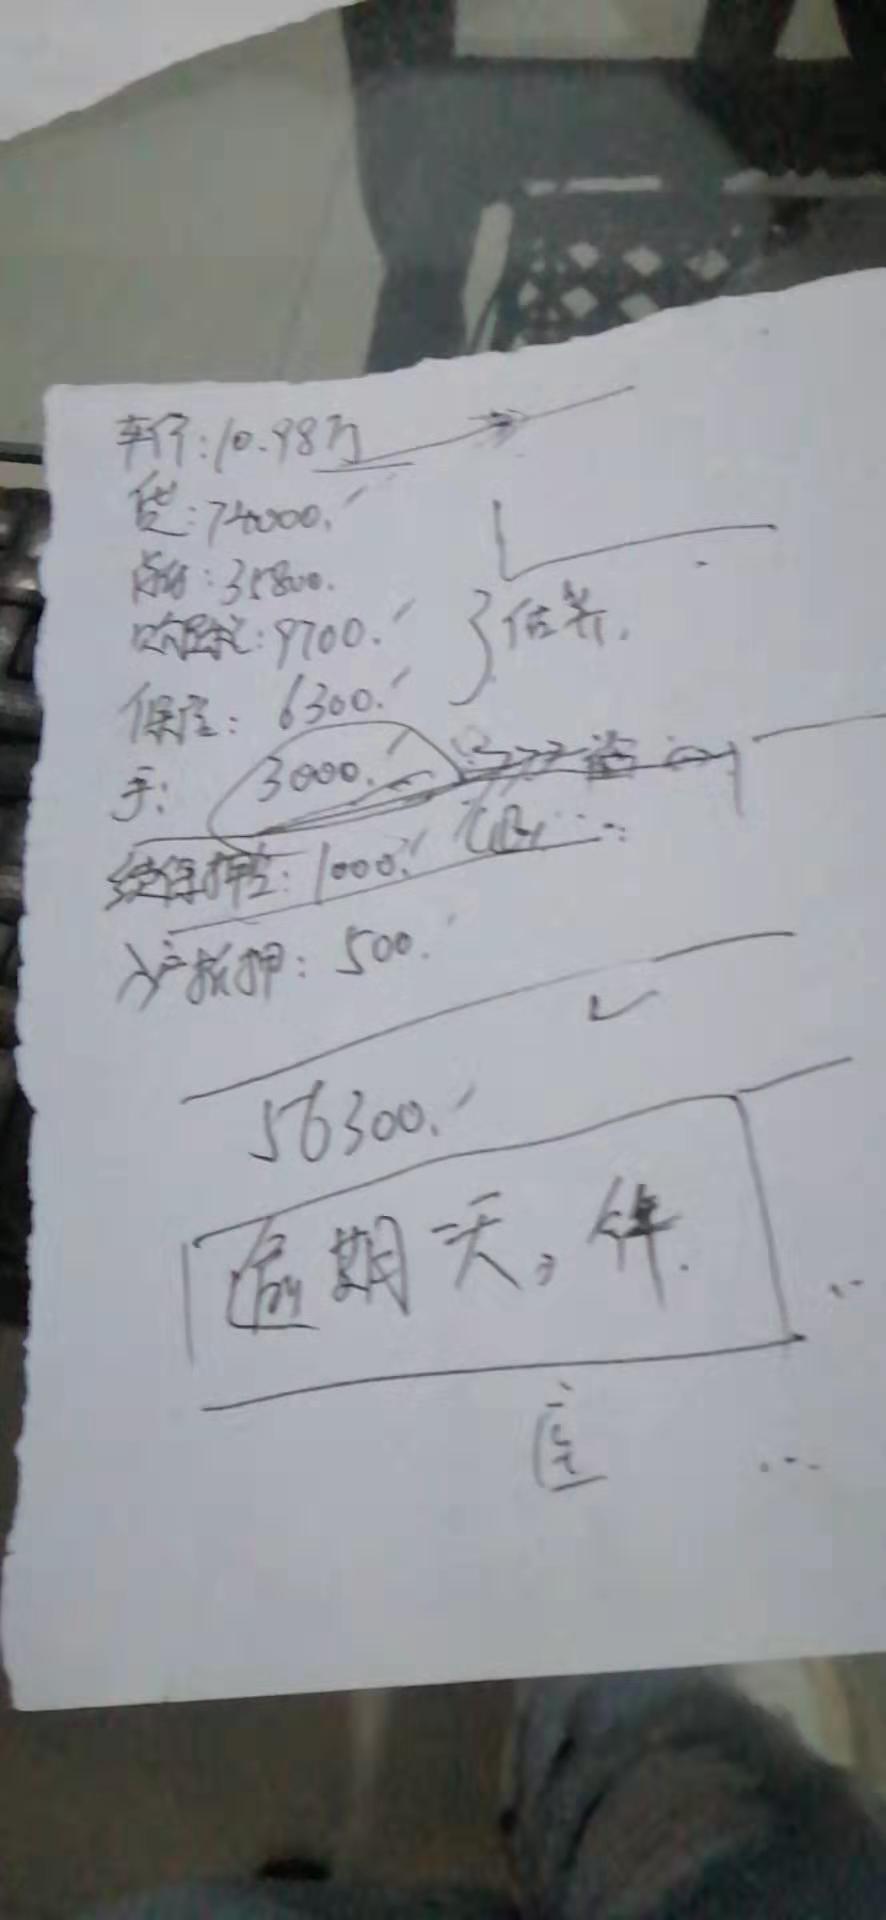 车价:10.98万
贷:74000.
首付:35800.
购置税:9700. }估算.
保险:6300.
手:3000.
续保押金:1000.
入户抵押:500.
56300.
逾期天,件.